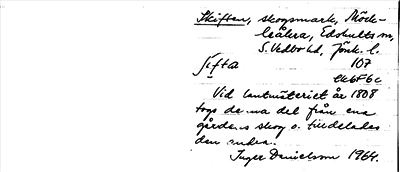 Skiften, skogsmark, Möcle-
leålera, Edshults sn,
S. Vedbo hd, Jönk. l.
ʃifta 107
EK6F6c
Vid lantmäteriet år 1808
togs denna del från ena
gårdens skog o. tilldelades
den andra.
Inger Danielsson 1964.